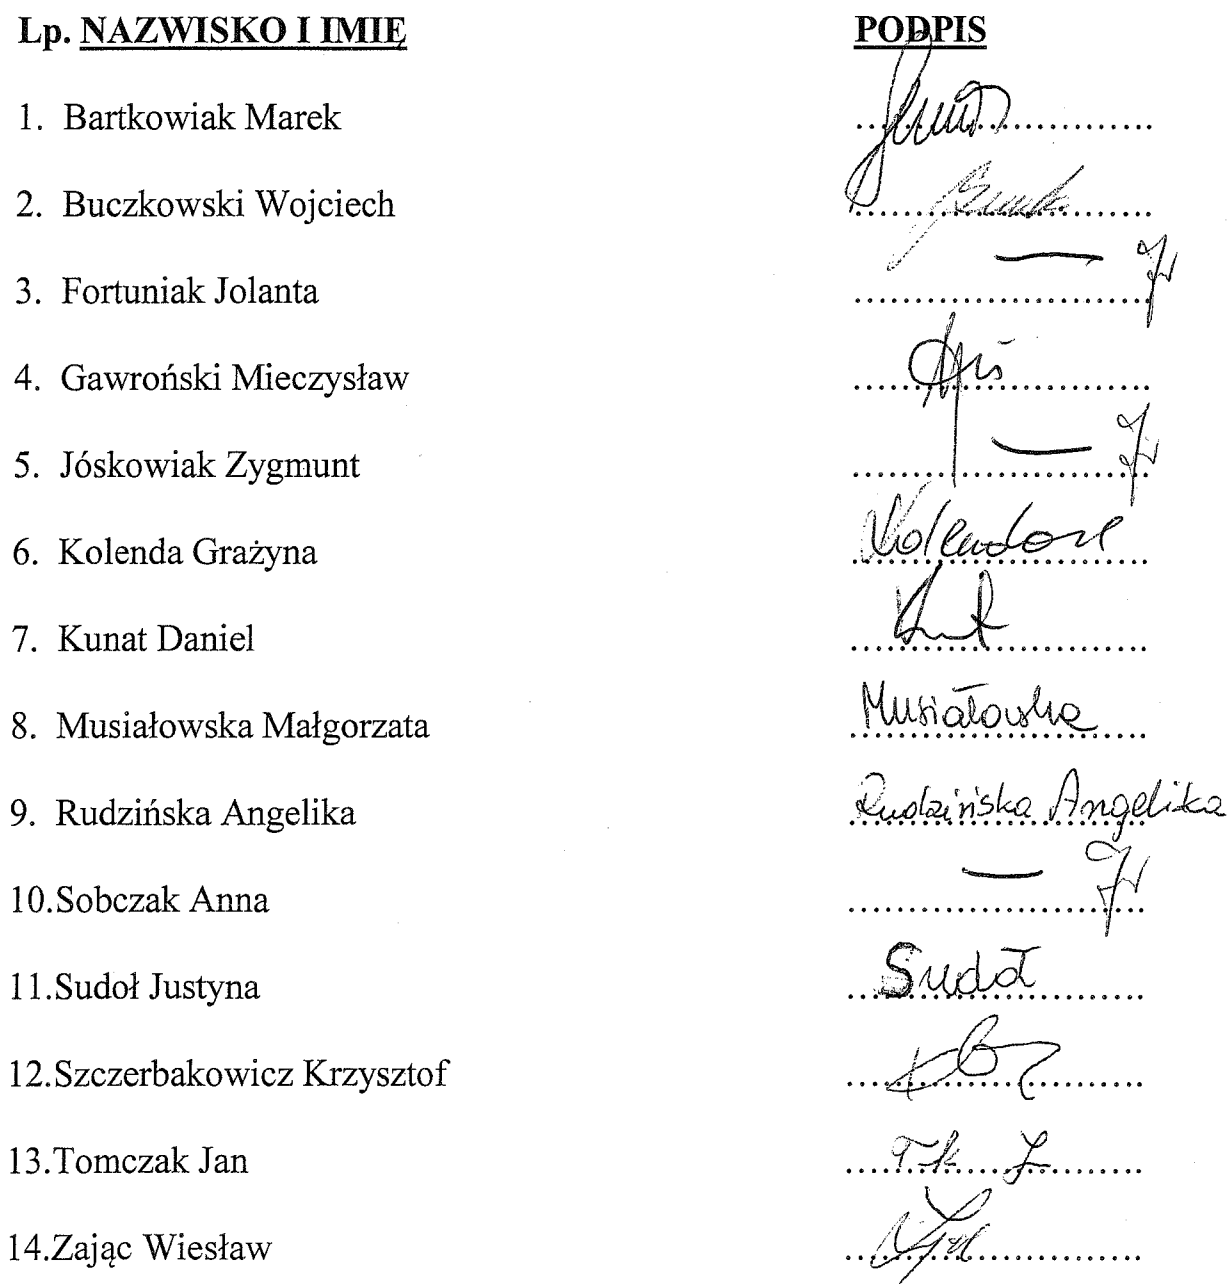 Lp. NAZWISKO I IMIĘ PODPIS
1. Bartkowiak Marek ..............................
2. Buczkowski Wojciech ..............................
3. Fortuniak Jolanta .............................. —
4. Gawroński Mieczysław ..............................
5. Jóskowiak Zygmunt .............................. —
6. Kolenda Grażyna ..............................
7. Kunat Daniel ..............................
8. Musiałowska Małgorzata Musiałowska
9. Rudzińska Angelika Rudzińska Angelika
10.Sobczak Anna .............................. —
11.Sudoł Justyna Sudoł
12.Szczerbakowicz Krzysztof ..............................
13.Tomczak Jan ..............................
14.Zając Wiesław ..............................